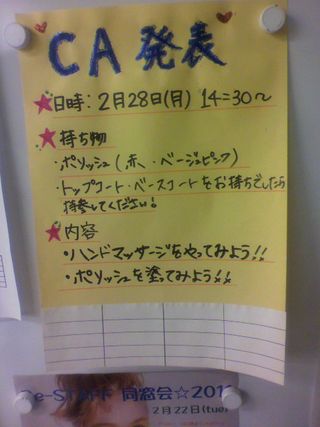 CA 発表
★日時：2月28日(月) 14:30〜
★持ち物
・ポリッシュ(赤、ベージュピンク)
・トップコート・ベースコートをお持ちでしたら
持参してください!
★内容
・ハンドマッサージをやってみよう!!
・ポリッシュを塗ってみよう!!
e-STAFF 同窓会☆201
2月22日(tue)